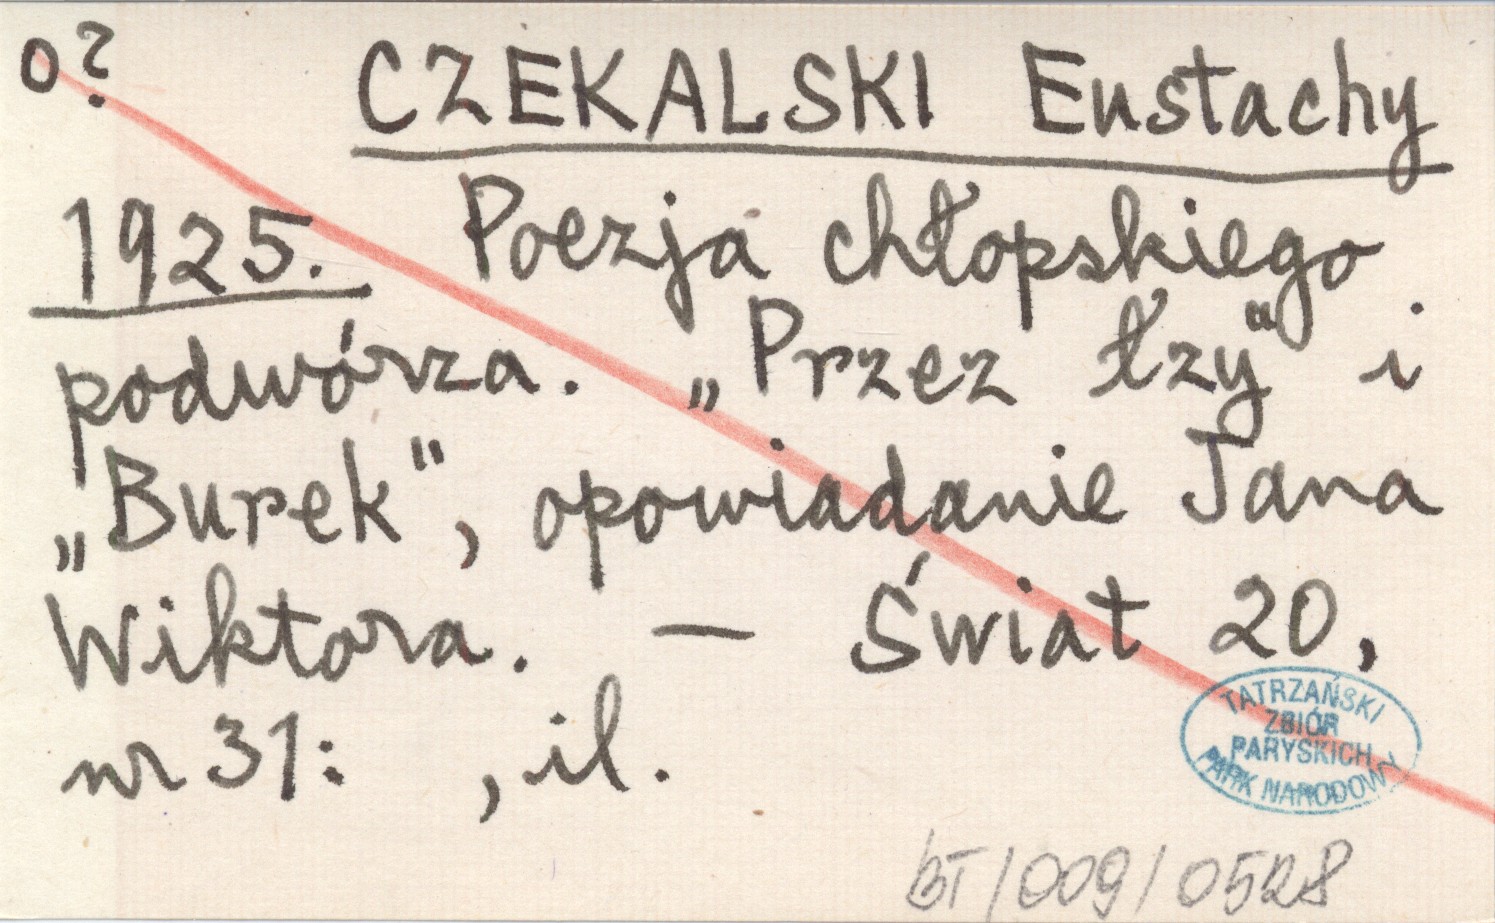 o? CZEKALSKI Eustachy
1925. Poezja chłopskiego
podwórza. „Przez łzy" i
„Burek", opowiadanie Jana
Wiktora. — Świat 20,
nr 31: , il.
TATRZAŃSKI
ZBIÓR
PARYSKICH
PARK NARODOWY
BT/009/0528